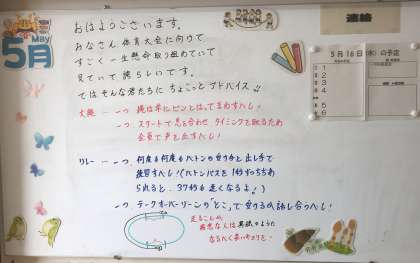 May
5月
おはようございます。
みなさん、体育大会に向けて
すごく一生懸命取り組めていて
見ていて誇らしいです。
ではそんな君たちに ちょこっとアドバイス!!
大縄 一つ 縄は常にピンとはってまわすべし!
一つ スタートで息を合わせ タイミングを取るため
全員で声を出すべし!
リレー 一つ、何度も何度もバトンの受け手と出し手で
練習すべし!(バトンパスを1秒ずつちぢ
められると、37秒も速くなるよ!)
一つ テークオーバーゾーンの"どこ"で受けるか話し合うべし!
走ることの
なるたく
連絡
5月16日(水)の予定
1
2
3
4
5
6